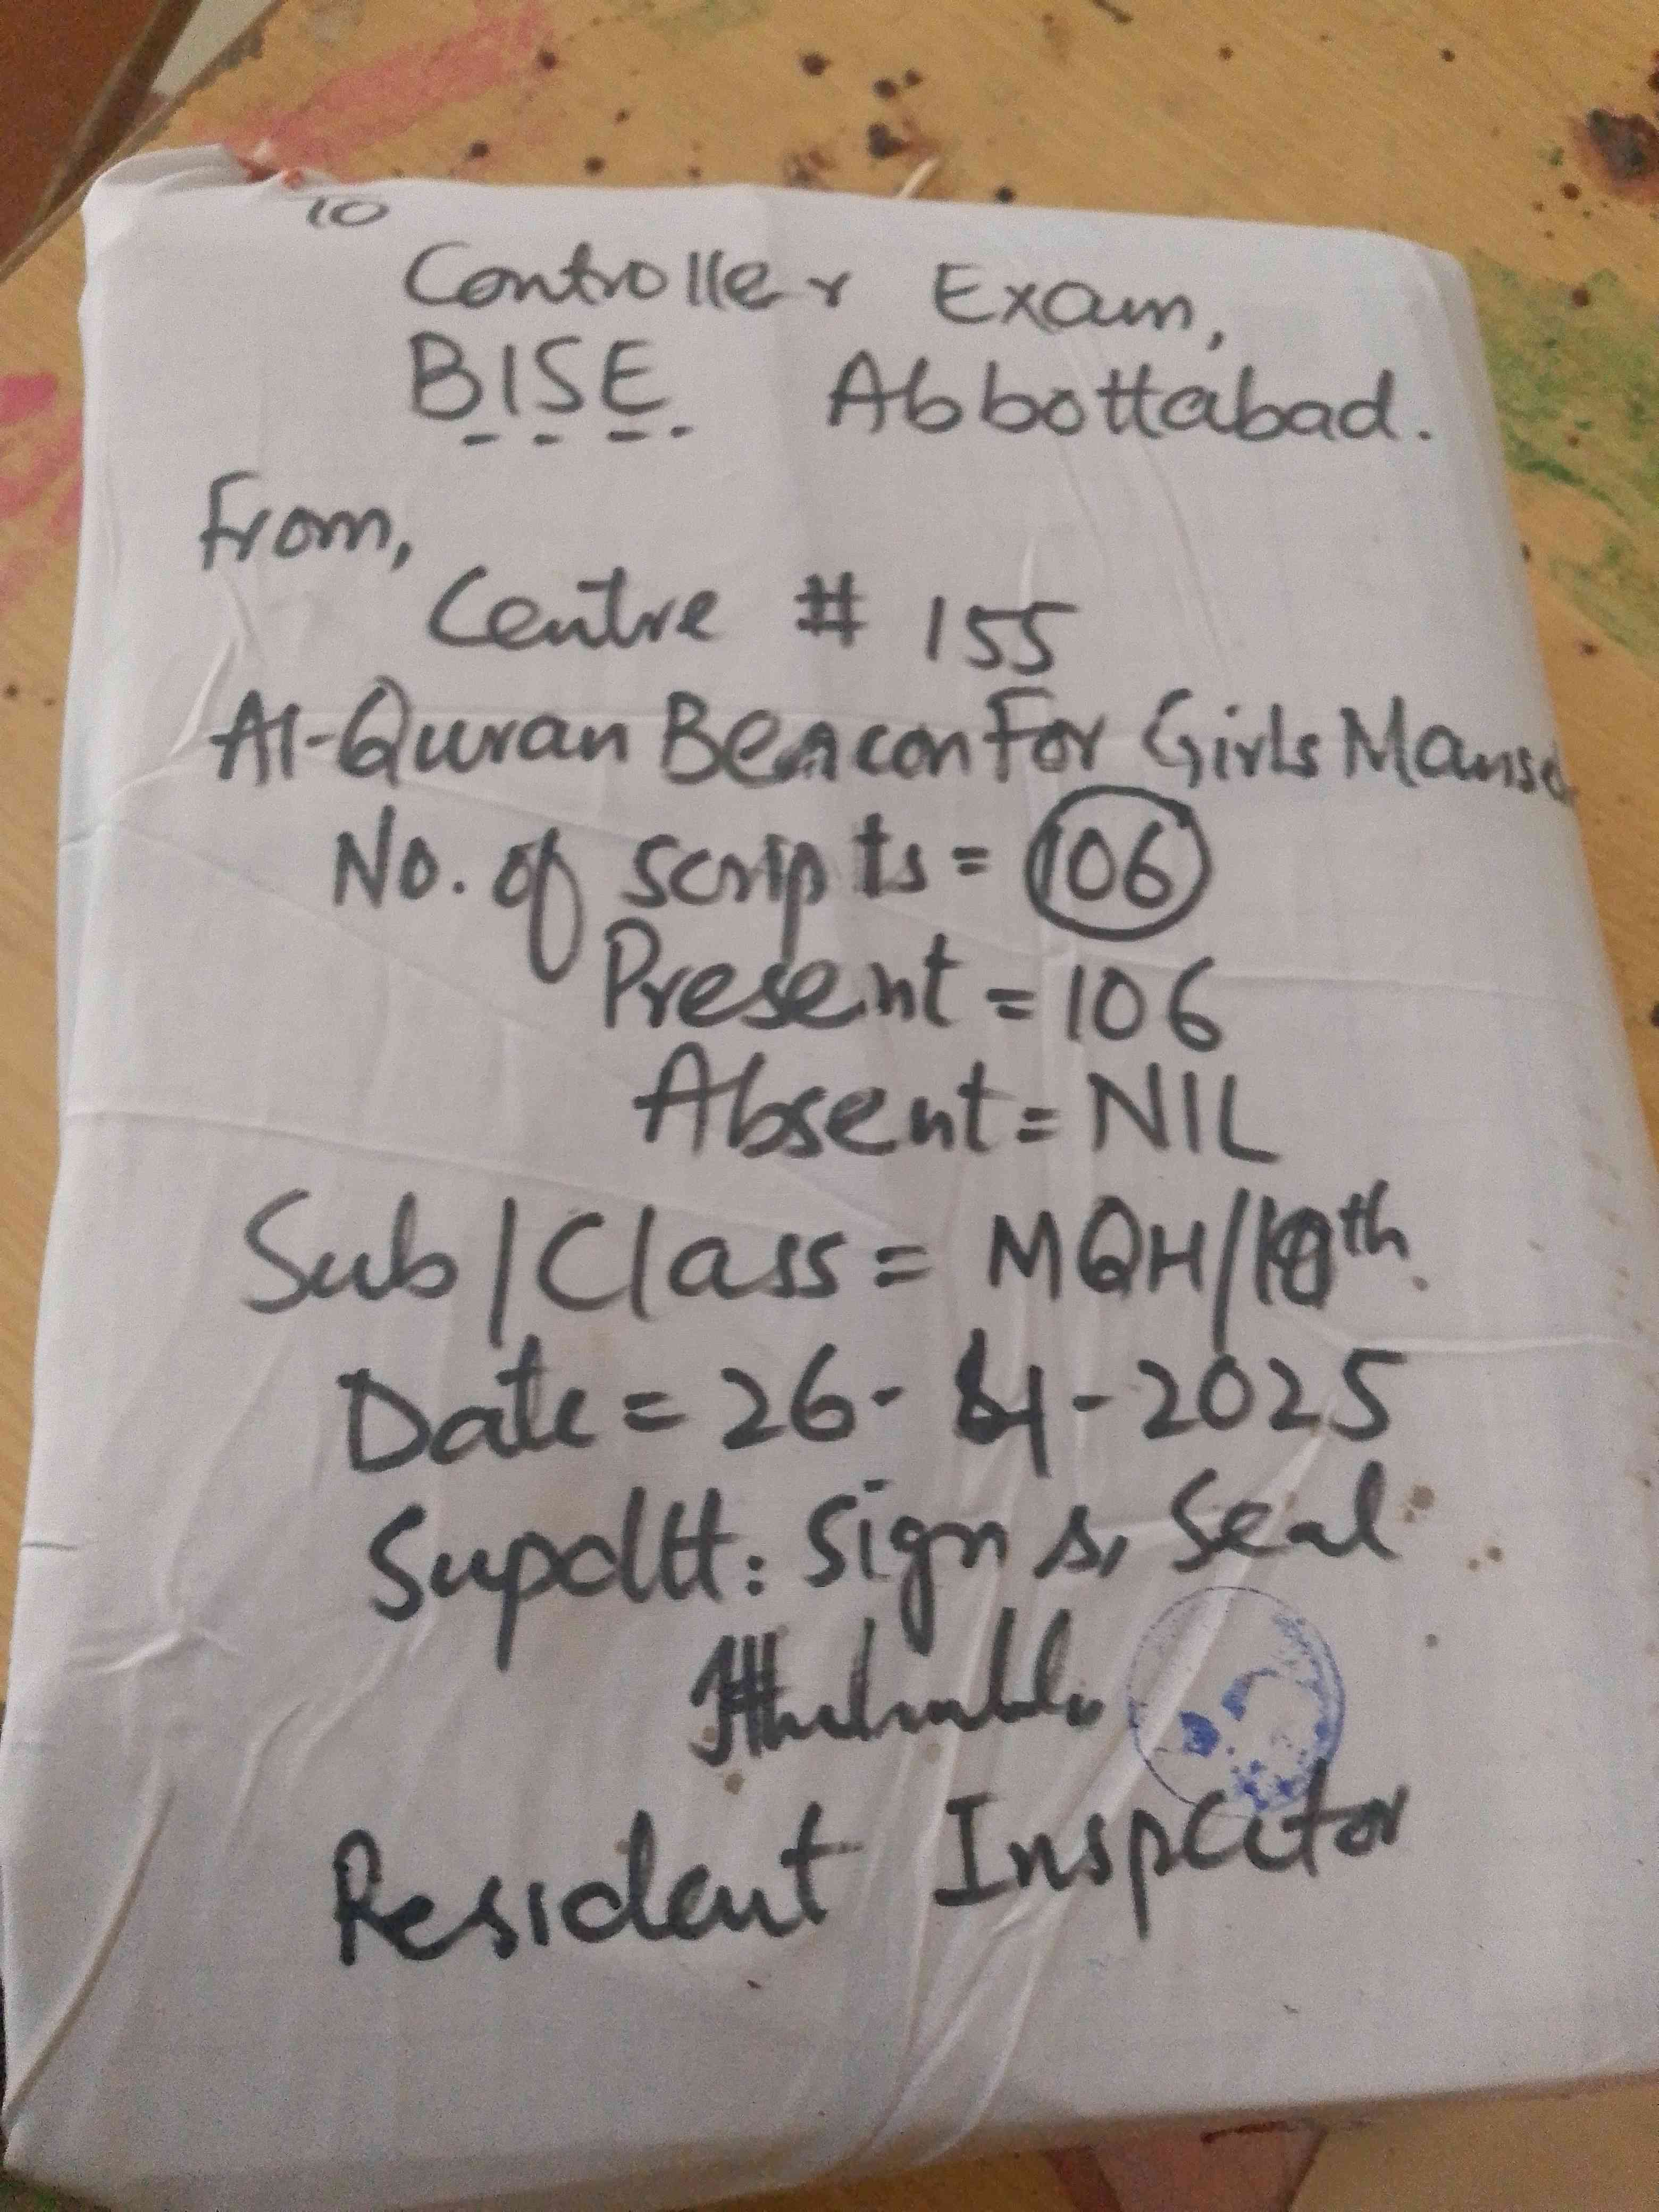 To
Controller Exam,
B.I.S.E. Abbottabad.
From,
Centre # 155
Al-Quran Beacon For Girls
No. of scripts = 106
Present = 106
Absent = NIL
Sub/Class = MQH/10th.
Date = 26-4-2025
Supdtt: Sign & Seal
Resident Inspector